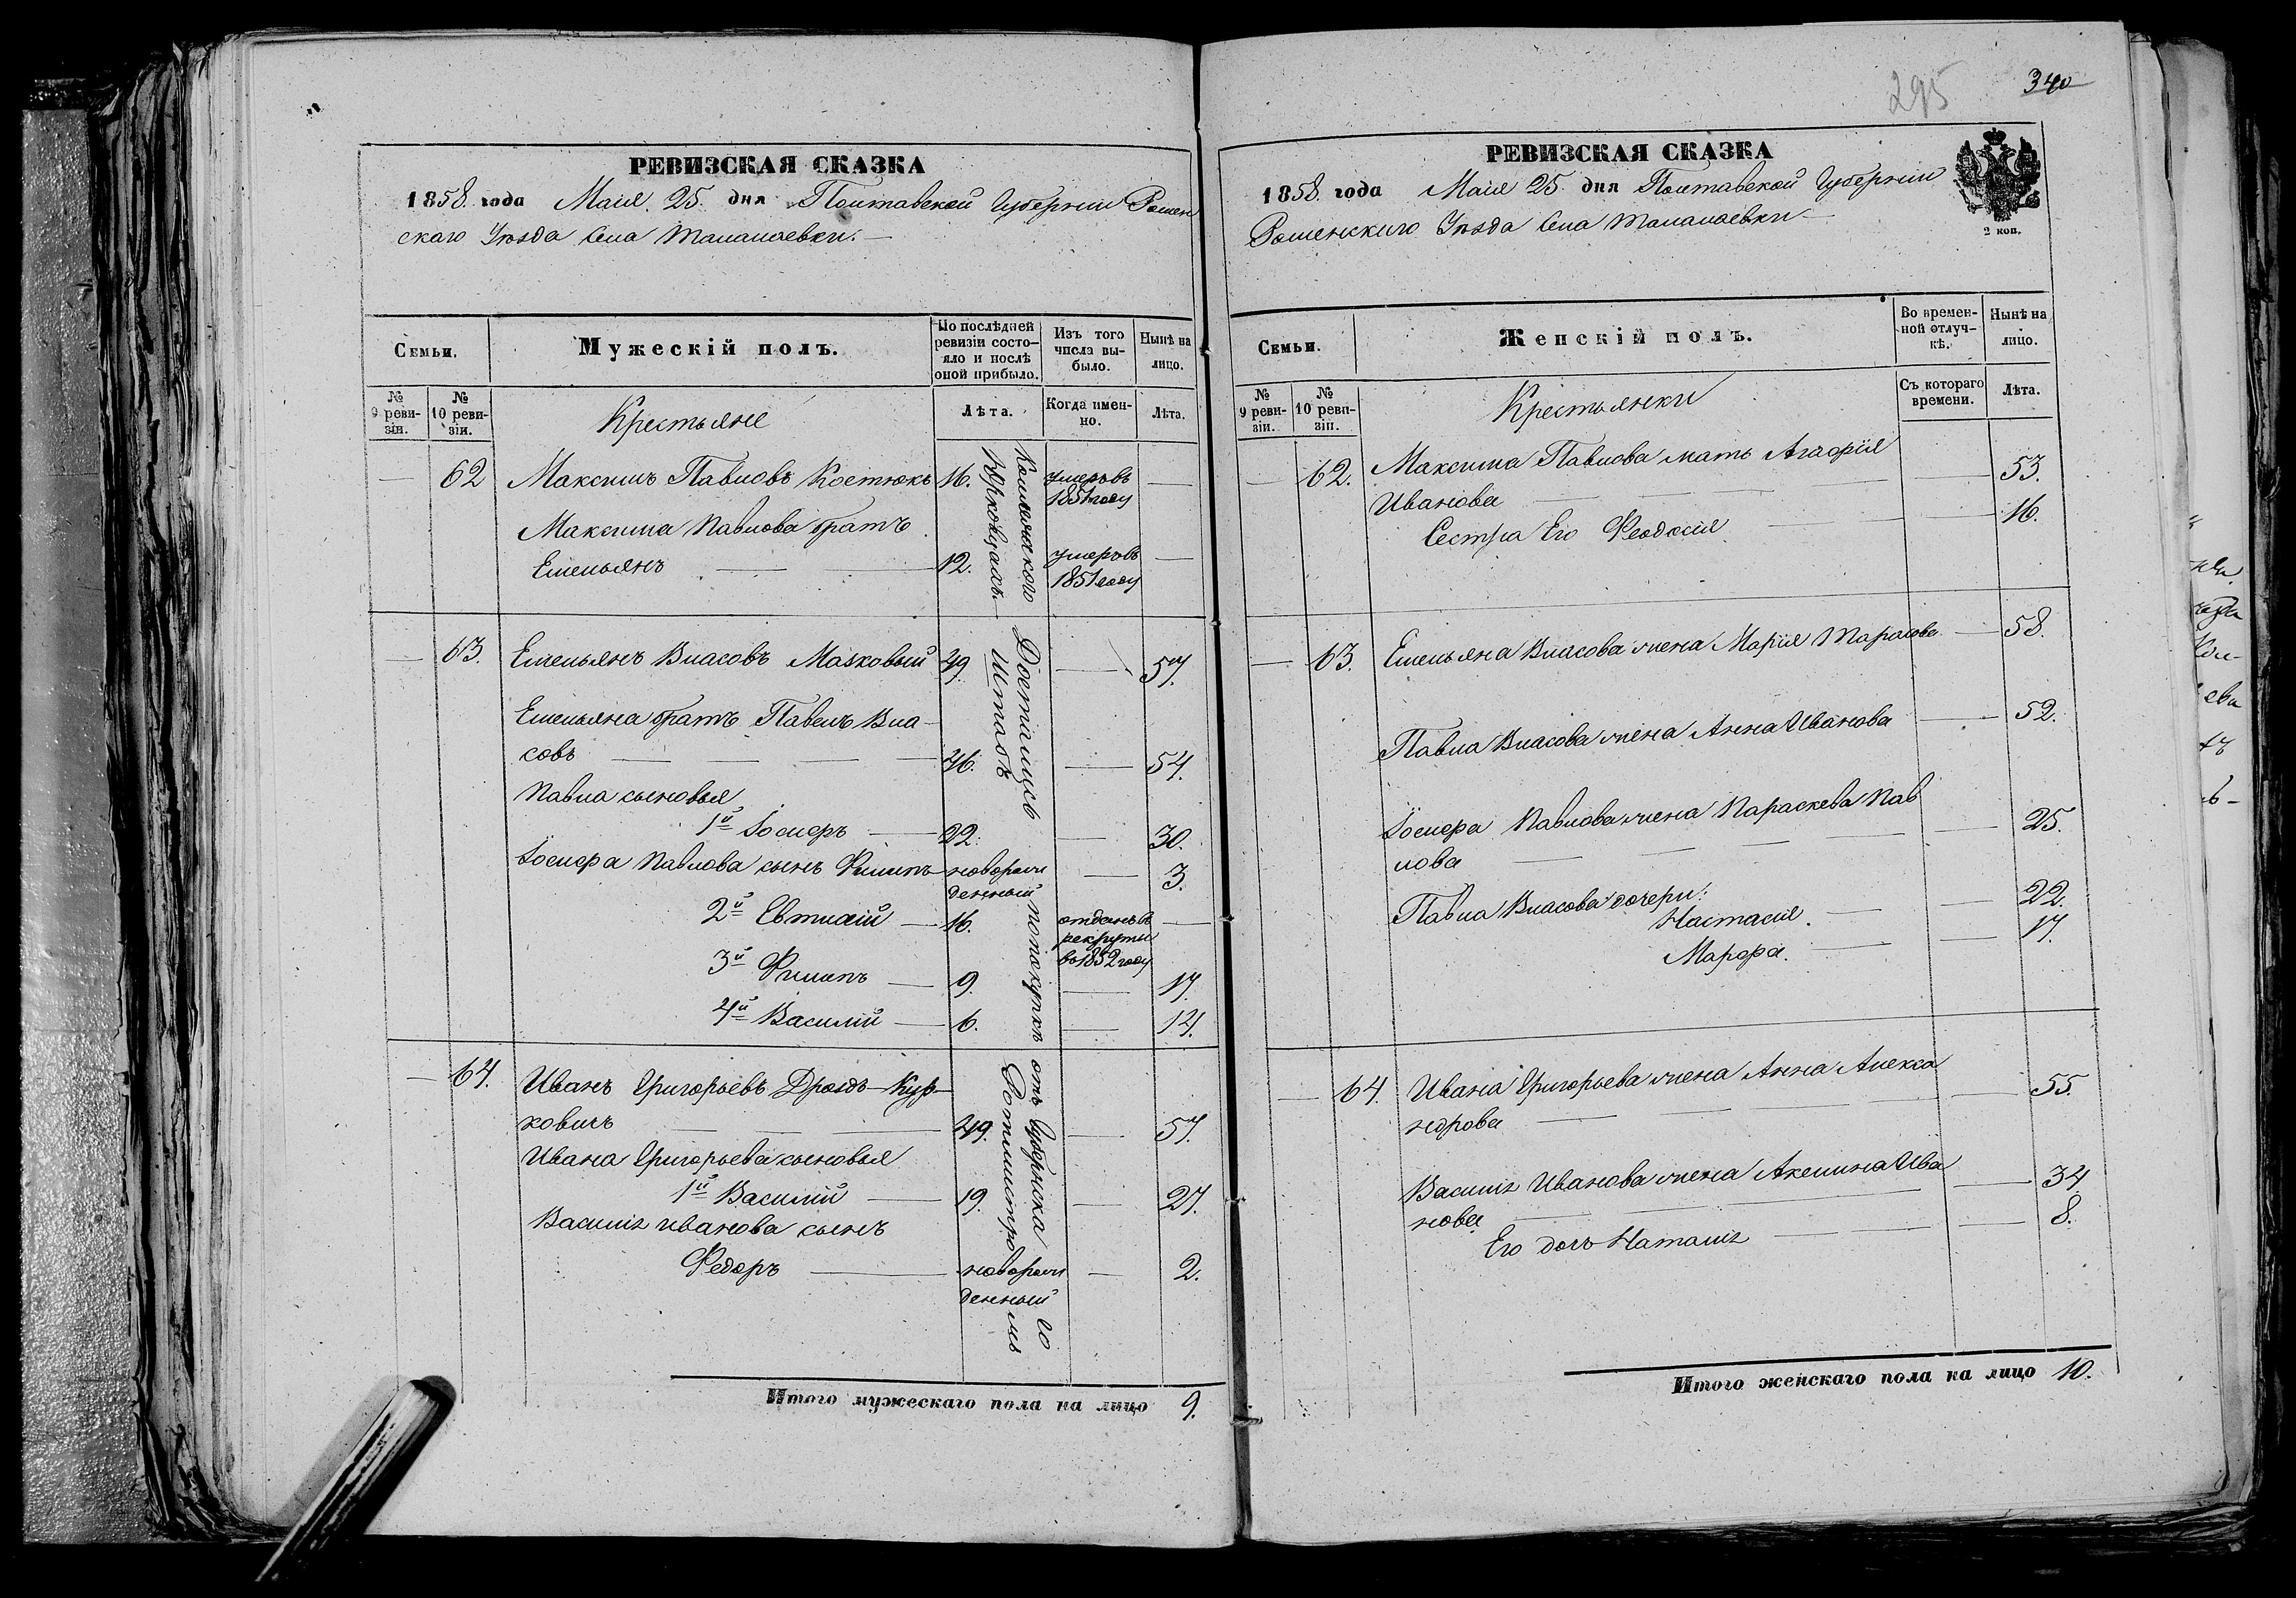 РЕВИЗСКАЯ СКАЗКА
1858. года Маія 25. дня Полтавской Губерніи Ромен
скаго Уѣзда Села Талалаевки.
Семьи.
Мужескій полъ.
По послѣдней ревизіи состояло и послѣ оной прибыло.
Изъ того числа выбыло.
Нынѣ на лицо.
№ 9 ревизіи.
№ 10 ревизіи.
Крестьяне
Лѣта.
Когда именно.
Лѣта.
62 Максимъ Павловъ Костюкъ 16. умеръ въ 1851 году
Максима Павлова братъ
Емельянъ 12. умеръ въ 1851 году
63. Емельянъ Власовъ Мазковый 49 57.
Емельяна братъ Павелъ Вла-
совъ 46. 54.
Павла сыновья
1й Іосифъ 22. 30.
Іосифа Павлова сынъ Филипъ новорожденный 3.
2й Евтихій 16. отданъ въ рекруты въ 1852 году
3й Филипъ 9. 17.
4й Василій 6. 14.
64. Иванъ Григорьевъ Дроздъ-Кур-
ковичъ 49. 57.
Ивана Григорьева сыновья
1й Василій 19. 27.
Василія Иванова сынъ
Федоръ новорожденный 2.
Достались по покупкѣ отъ
Штабъ Ротмистро мъ
Итого мужескаго пола на лицо 9.
295
340
РЕВИЗСКАЯ СКАЗКА
1858. года Маія 25 дня Полтавской Губерніи
Роменскаго Уѣзда Села Талалаевки
2 коп.
Семьи.
Женскій полъ.
Во временной отлучкѣ.
Нынѣ на лицо.
№ 9 ревизіи.
№ 10 ревизіи.
Крестьянки
Съ котораго времени.
Лѣта.
62. Максима Павлова мать Агафія
Иванова 53.
Сестра Его Феодосія 16.
63. Емельяна Власова жена Марія Тарасова 58.
Павла Власова жена Анна Иванова 52.
Іосифа Павлова жена Параскева Пав
лова 25.
Павла Власова дочери:
Настасія. 22.
Марфа. 17.
64. Ивана Григорьева жена Анна Алекса
ндрова 55.
Василія Иванова жена Акелина Ива
нова 34
Его дочь Наталія 8.
Итого женскаго пола на лицо 10.